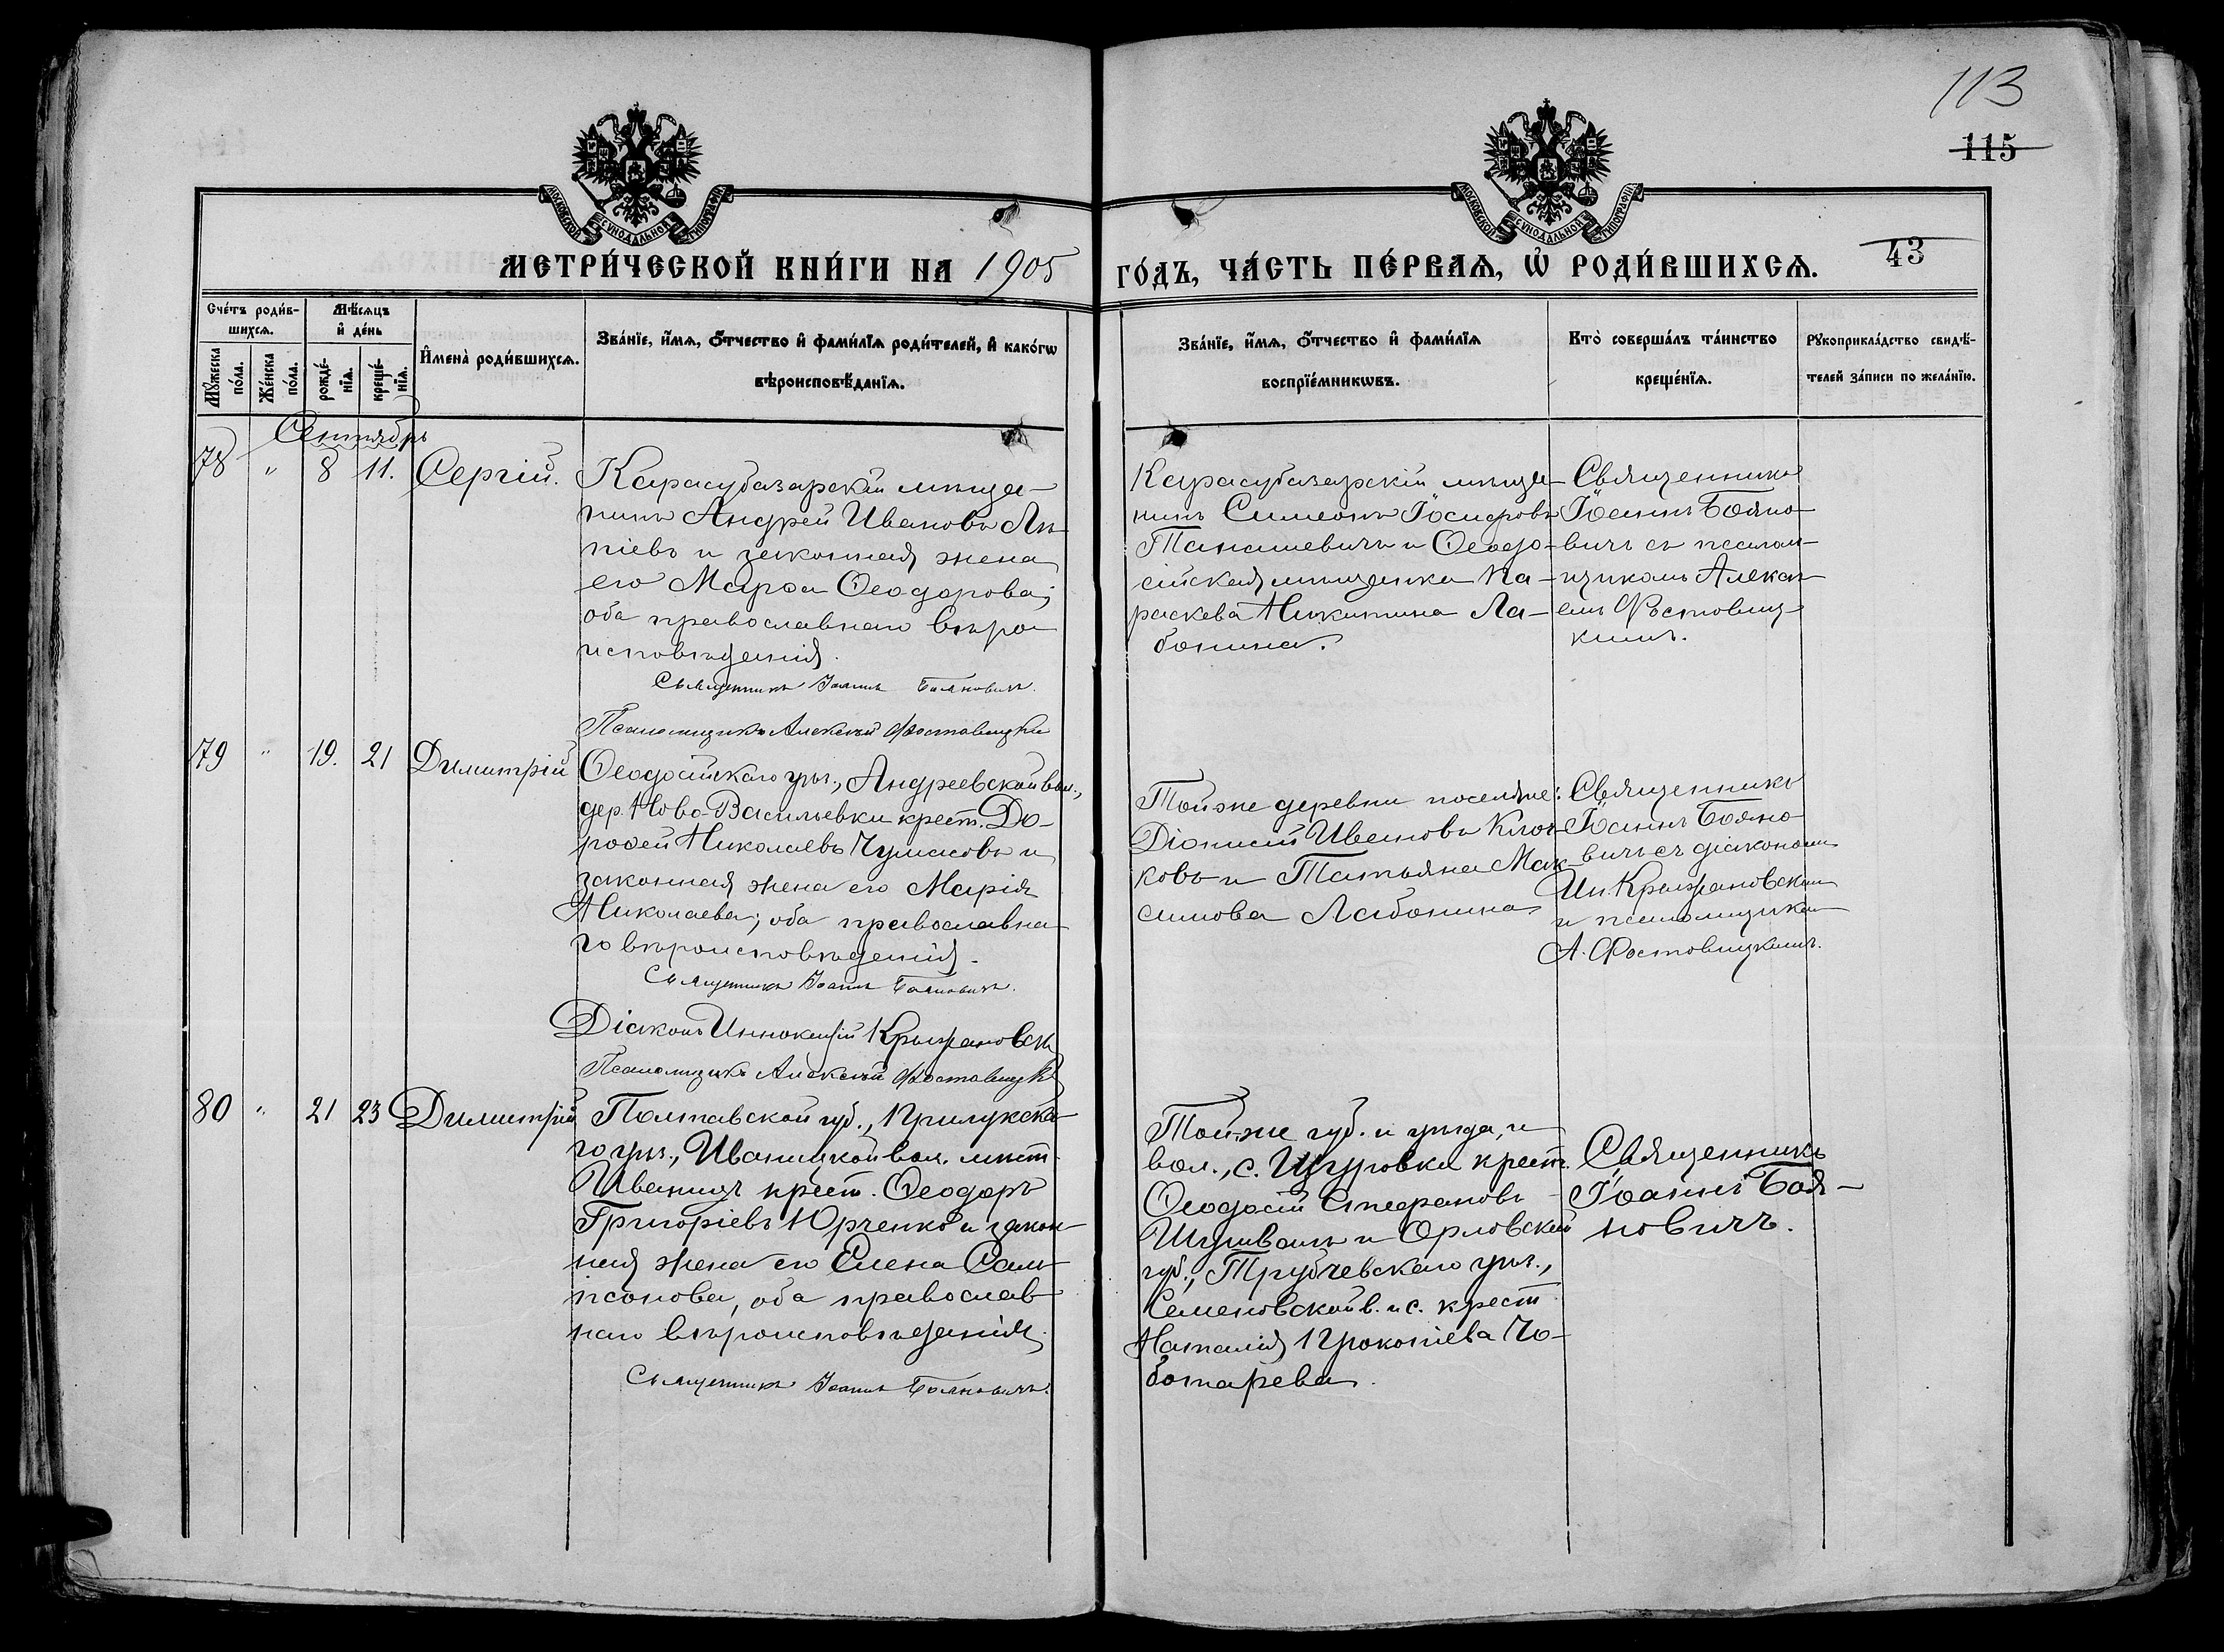 113
115
МОСКОВСКОЙ СѴНОДАЛЬНОЙ ТИПОГРАФІИ
МОСКОВСКОЙ СѴНОДАЛЬНОЙ ТИПОГРАФІИ
МЕТРИ́ЧЕСКОЙ КНИ́ГИ НА 1905
ГО́ДЪ, ЧА́СТЬ ПЕ́РВАѦ, Ѡ҆ РОДИ́ВШИХСѦ.
43
Сче́тъ роди́в-
шихсѧ.
Мѣ́сѧцъ
и҆ де́нь
Мꙋ́жеска по́ла.
Же́нска по́ла.
рожде́-
нїѧ.
креще́-
нїѧ.
И҆мена̀ роди́вшихсѧ.
Зва́нїе, и҆́мѧ, ѻ҆́тчество и҆ фами́лїѧ роди́телей, и҆ како́гѡ
вѣроисповѣ́данїѧ.
Зва́нїе, и҆́мѧ, ѻ҆́тчество и҆ фами́лїѧ
воспрїе́мникѡвъ.
Кто̀ соверша́лъ та́инство
креще́нїѧ.
Рꙋкоприкла́дство свидѣ́-
телей за́писи по жела́нїю.
Сентябрь
78 " 8 11. Сергій.
Карасубазарскій мѣща-
нинъ Андрей Ивановъ
и законная жена
его Марѳа Ѳеодорова;
оба православнаго вѣро
исповѣданія.
Священникъ Іоаннъ Бояновичъ.
Псаломщикъ Алексѣй
Карасубазарскій мѣща-
нинъ Симеонъ Іосифовъ
Танашевичъ и Ѳеодо-
сійская мѣщанка Па-
раскева Никитина Ла-
бонина.
Священникъ
Іоаннъ Бояно-
вичъ съ псалом-
щикомъ Алексѣ-
емъ Фостовиц-
кимъ.
79 " 19. 21 Димитрій
Ѳеодосійскаго уѣз., Андреевской вол.,
дер. Ново-Васильевки крест. До-
роѳей Николаевъ Чумаковъ и
законная жена его Марія
Николаева; оба православна-
го вѣроисповѣданія.
Священникъ Іоаннъ Бояновичъ.
Діаконъ Иннокентій Крыжановск
Псаломщикъ Алексѣй
Той-же деревни поселяне:
Діонисій Ивановъ Клоч-
ковъ и Татьяна Мак-
симова Лабонина
Священникъ
Іоаннъ Бояно-
вичъ съ діакономъ
Ин. Крыжановским
и псаломщиком
А. Фостовицкимъ.
80 " 21 23 Димитрій
Полтавской губ., Прилукска-
го уѣз., Иваницкой вол. мѣст.
Иваницъ крест. Ѳеодоръ
Григоріевъ Юрченко и закон-
ная жена его Елена Сам-
псонова, оба православ-
наго вѣроисповѣданія.
Священникъ Іоаннъ Бояновичъ.
Той-же губ. и уѣзда, и
вол., с. Щуровки крест.
Ѳеодосій Стефановъ
и Орловской
губ., Трубчевскаго уѣз.,
Семеновской в. и с. крест.
Наталія Прокопіева Чо-
ботарева.
Священникъ
Іоаннъ Боя-
новичъ.